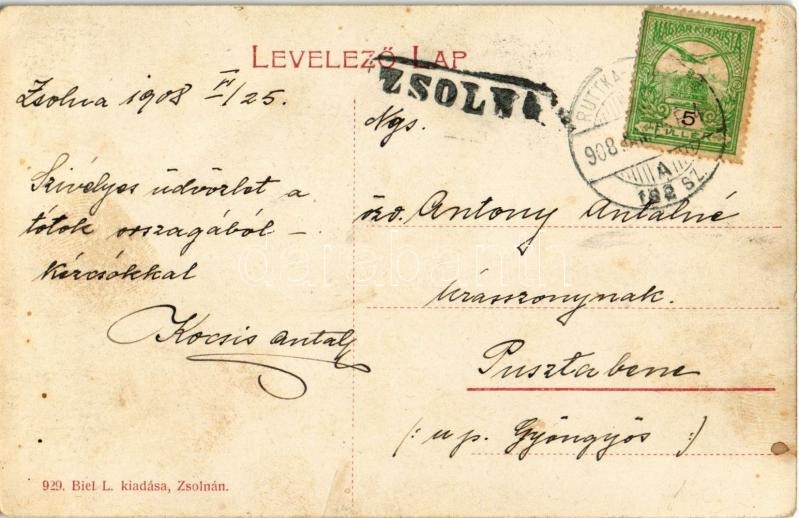 LEVELEZŐ LAP
ZSOLNA
MAGYAR KIR. POSTA
5
FILLÉR
RUTTKA
908
A
182 SZ.
Zsolna 1908 VI/25.
Szivélyes üdvözlet a
tótok országából –
kézcsókkal
Kocsis Antal
Ngs.
özv. Antony Antalné
úrasszonynak.
Pusztabene
(: u p. Gyöngyös :)
darabanth
929. Biel L. kiadása, Zsolnán.